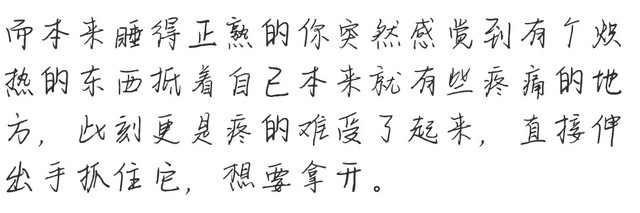 而本来睡得正熟的你突然感觉到有个炽
热的东西抵着自己本来就有些疼痛的地
方，此刻更是疼的难受了起来，直接伸
出手抓住它，想要拿开。